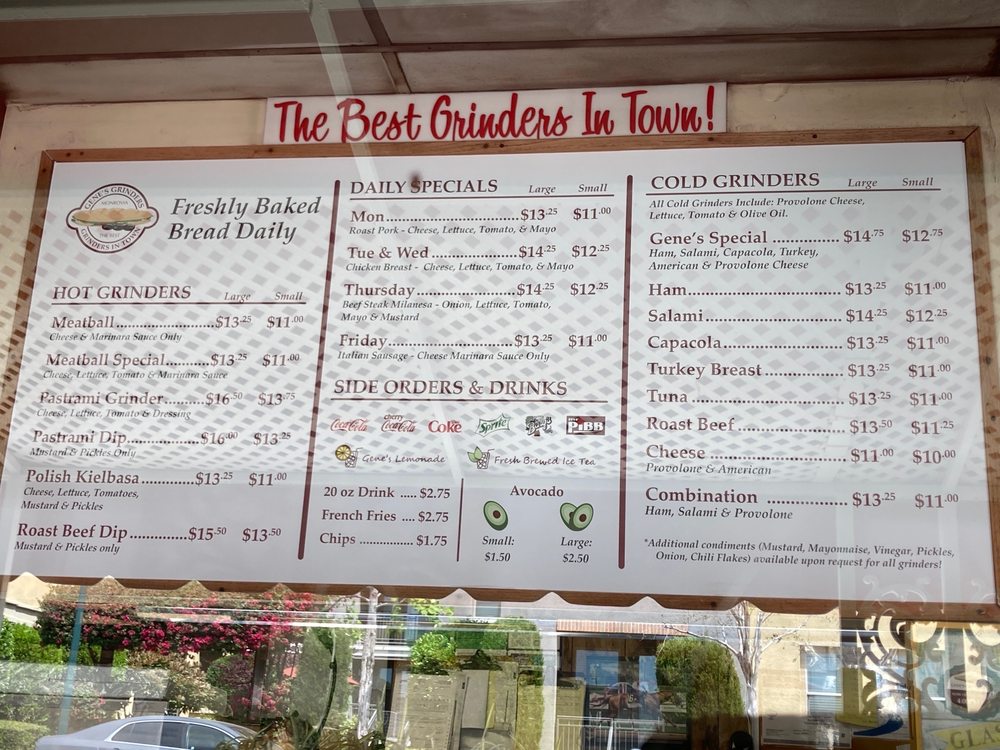 The Best Grinders In Town!
GENE'S GRINDERS
MONROVIA
THE BEST
GRINDERS IN TOWN
Freshly Baked
Bread Daily
HOT GRINDERS Large Small
Meatball $13.25 $11.00
Cheese & Marinara Sauce Only
Meatball Special $13.25 $11.00
Cheese, Lettuce, Tomato & Marinara Sauce
Pastrami Grinder $16.50 $13.75
Cheese, Lettuce, Tomato & Dressing
Pastrami Dip $16.00 $13.25
Mustard & Pickles Only
Polish Kielbasa $13.25 $11.00
Cheese, Lettuce, Tomatoes,
Mustard & Pickles
Roast Beef Dip $15.50 $13.50
Mustard & Pickles only
DAILY SPECIALS Large Small
Mon $13.25 $11.00
Roast Pork - Cheese, Lettuce, Tomato, & Mayo
Tue & Wed $14.25 $12.25
Chicken Breast - Cheese, Lettuce, Tomato, & Mayo
Thursday $14.25 $12.25
Beef Steak Milanesa - Onion, Lettuce, Tomato,
Mayo & Mustard
Friday $13.25 $11.00
Italian Sausage - Cheese Marinara Sauce Only
SIDE ORDERS & DRINKS
Coca-Cola cherry Coca-Cola Diet Coke Sprite PiBB
Gene's Lemonade Fresh Brewed Ice Tea
20 oz Drink ..... $2.75
French Fries .... $2.75
Chips ................ $1.75
Avocado
Small: Large:
$1.50 $2.50
COLD GRINDERS Large Small
All Cold Grinders Include: Provolone Cheese,
Lettuce, Tomato & Olive Oil.
Gene's Special $14.75 $12.75
Ham, Salami, Capacola, Turkey,
American & Provolone Cheese
Ham $13.25 $11.00
Salami $14.25 $12.25
Capacola $13.25 $11.00
Turkey Breast $13.25 $11.00
Tuna $13.25 $11.00
Roast Beef $13.50 $11.25
Cheese $11.00 $10.00
Provolone & American
Combination $13.25 $11.00
Ham, Salami & Provolone
*Additional condiments (Mustard, Mayonnaise, Vinegar, Pickles,
Onion, Chili Flakes) available upon request for all grinders!